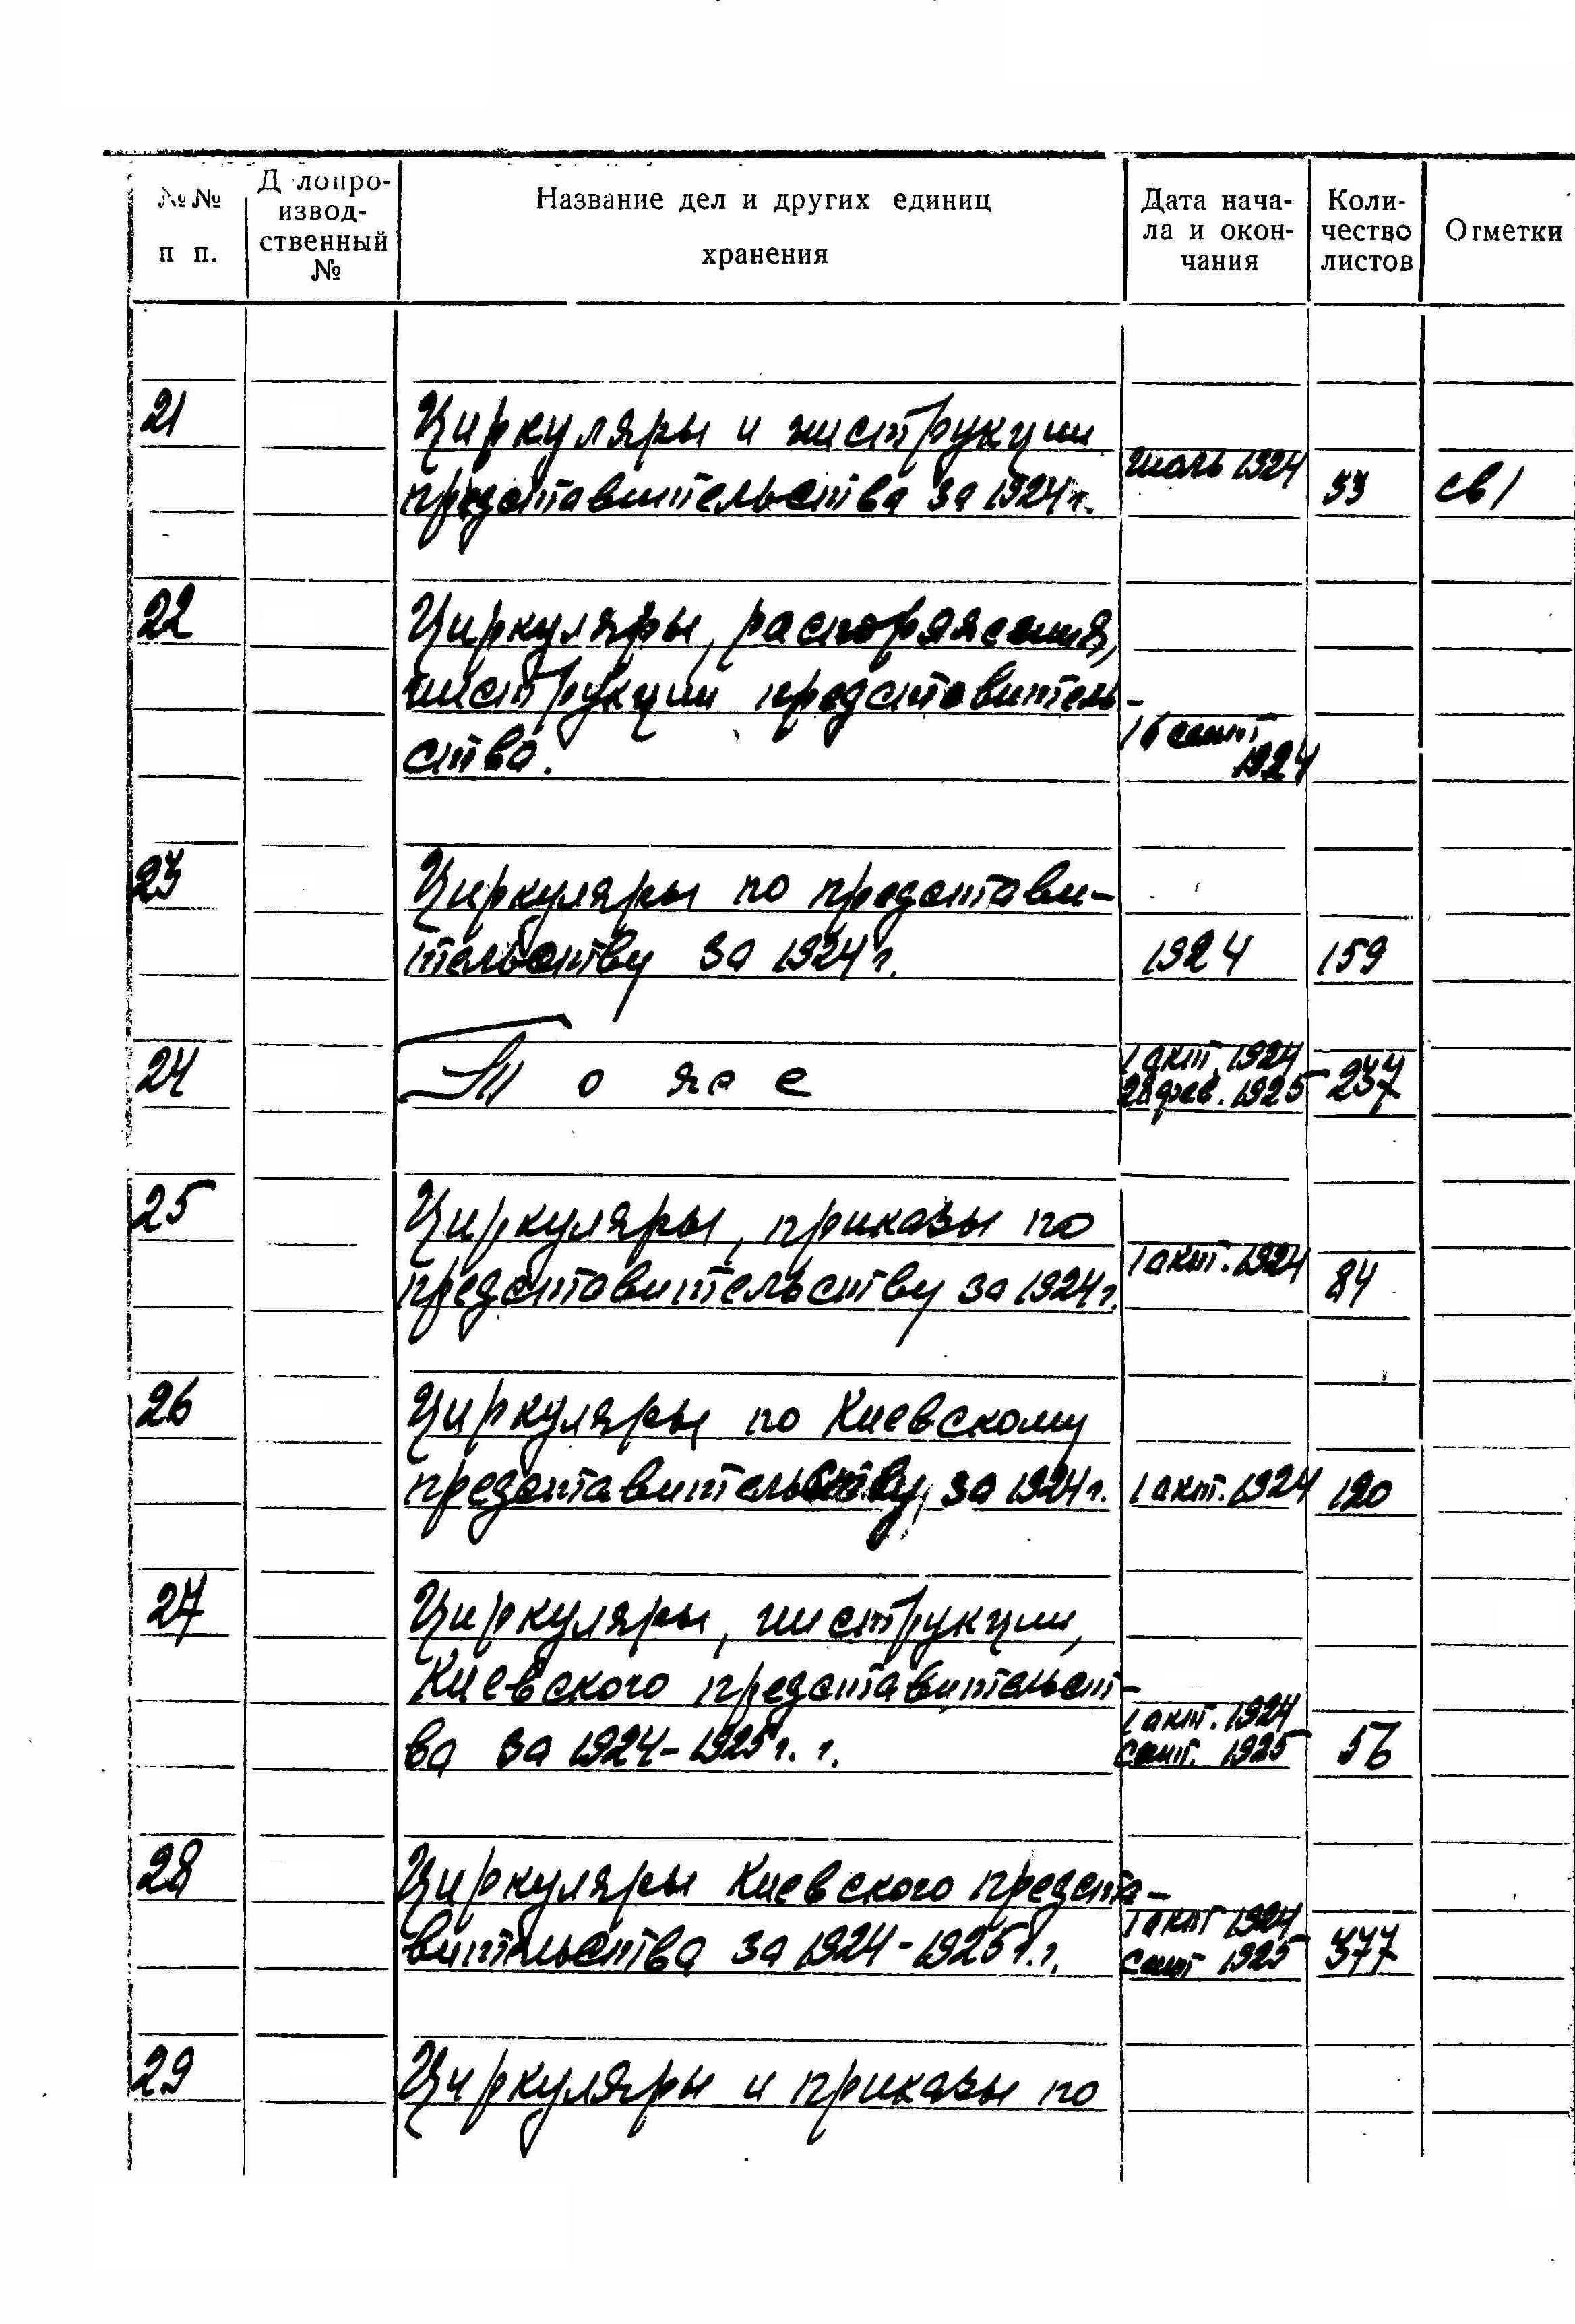 №№ п п.
Д лопро-
извод-
ственный
№
Название дел и других единиц
хранения
Дата нача-
ла и окон-
чания
Коли-
чество
листов
Отметки
21 Циркуляры и инструкции
представительства за 1924 г. июль 1924 53 св 1
22 Циркуляры, распоряжения,
инструкции представитель-
ства. 16 сент 1924
23 Циркуляры по представи-
тельству за 1924 г. 1924 159
24 То же 1 окт. 1924
28 фев. 1925 237
25 Циркуляры, приказы по
представительству за 1924 г. 1 окт. 1924 84
26 Циркуляры по Киевскому
представительству за 1924 г. 1 окт. 1924 120
27 Циркуляры, инструкции,
Киевского представительст-
ва за 1924-1925 г.г. 1 окт. 1924
сент. 1925 56
28 Циркуляры Киевского предста-
вительства за 1924-1925 г.г. 1 окт 1924
сент 1925 377
29 Циркуляры и приказы по